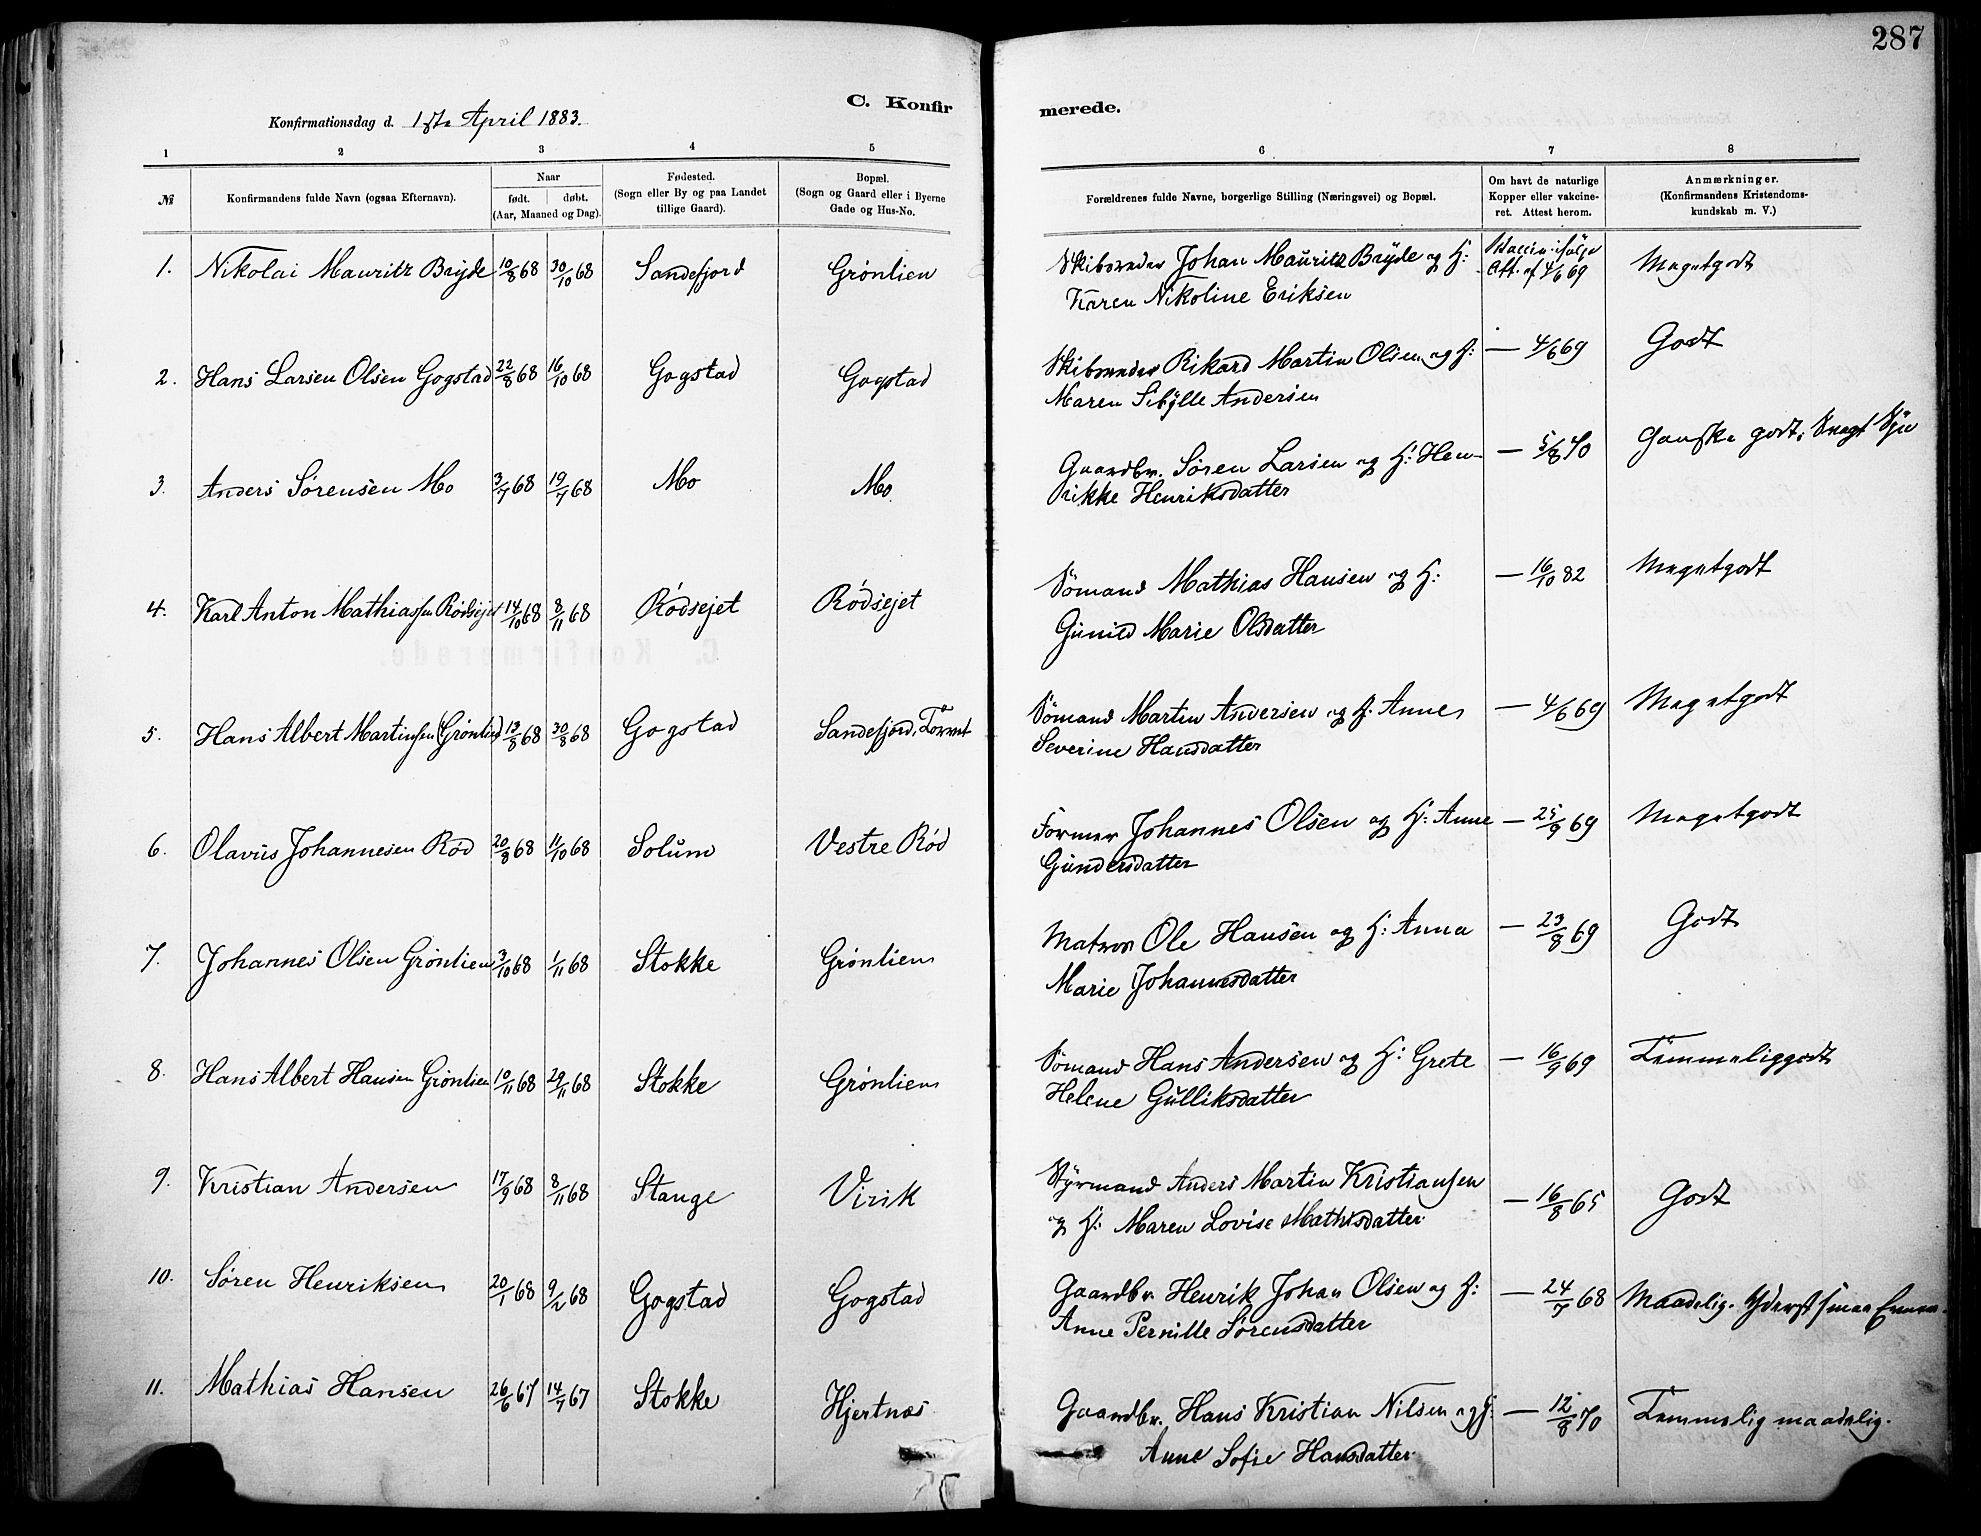 287
C. Konfirmerede.
Konfirmationsdag d. 1ste April 1883.
1 2 3 4 5 6 7 8
№
Konfirmandens fulde Navn (ogsaa Efternavn).
Naar
født. døbt.
(Aar, Maaned og Dag).
Fødested.
(Sogn eller By og paa Landet
tillige Gaard).
Bopæl.
(Sogn og Gaard eller i Byerne
Gade og Hus-No.
Forældrenes fulde Navne, borgerlige Stilling (Næringsvei) og Bopæl.
Om havt de naturlige
Kopper eller vakcine-
ret. Attest herom.
Anmærkninger.
(Konfirmandens Kristendoms-
kundskab m. V.)
1. Nikolai Mauritz Bryde 10/8 68 30/10 68 Sandefjord Grønlien Skibsreder Johan Mauritz Bryde og H: Vaccin: ifølge Meget godt
Karen Nikoline Eriksen Att. af 4/6 69
2. Hans Larsen Olsen Gogstad 22/8 68 16/10 68 Gogstad Gogstad Skibsreder Rikard Martin Olsen og H: — 4/6 69 Godt
Maren Sibylle Andersen
3. Anders Sørensen Mo 3/7 68 19/7 68 Mo Mo Gaardbr. Søren Larsen og H: Hen- — 5/8 70 Ganske godt.
rikke Henriksdatter
4. Karl Anton Mathiassen Rødsejet 14/10 68 8/11 68 Rødsejet Rødsejet Sømand Mathias Hansen og H: — 16/10 82 Meget godt
Gunild Marie Olsdatter
5. Hans Albert Martinsen (Grønlied) 13/8 68 30/8 68 Gogstad Sandefjord, Torvet Sømand Martin Andersen og H: Anne — 4/6 69 Meget godt
Severine Hansdatter
6. Olavus Johannesen Rød 20/8 68 11/10 68 Solum Vestre Rød Former Johannes Olsen og H: Anne — 25/9 69 Meget godt
Gundersdatter
7. Johannes Olsen Grønlien 3/10 68 1/11 68 Stokke Grønlien Matros Ole Hansen og H: Anna — 23/8 69 Godt
Marie Johannesdatter
8. Hans Albert Hansen Grønlien 10/11 68 29/11 68 Stokke Grønlien Sømand Hans Andersen og H: Grete — 16/9 69 Temmelig godt
Helene Gulliksdatter
9. Kristian Andersen 17/9 68 8/11 68 Stange Virik Styrmand Anders Martin Kristiansen — 16/8 65 Godt
og H: Maren Lovise Mathisdatter
10. Søren Henriksen 20/1 68 9/2 68 Gogstad Gogstad Gaardbr. Henrik Johan Olsen og H: — 24/7 68 Maadelig. Yderst smaa
Anne Pernille Sørensdatter
11. Mathias Hansen 26/6 67 14/7 67 Stokke Hjertnæs Gaardbr. Hans Kristian Nilsen og H: — 12/8 70 Temmelig maadelig.
Anne Sofie Hansdatter